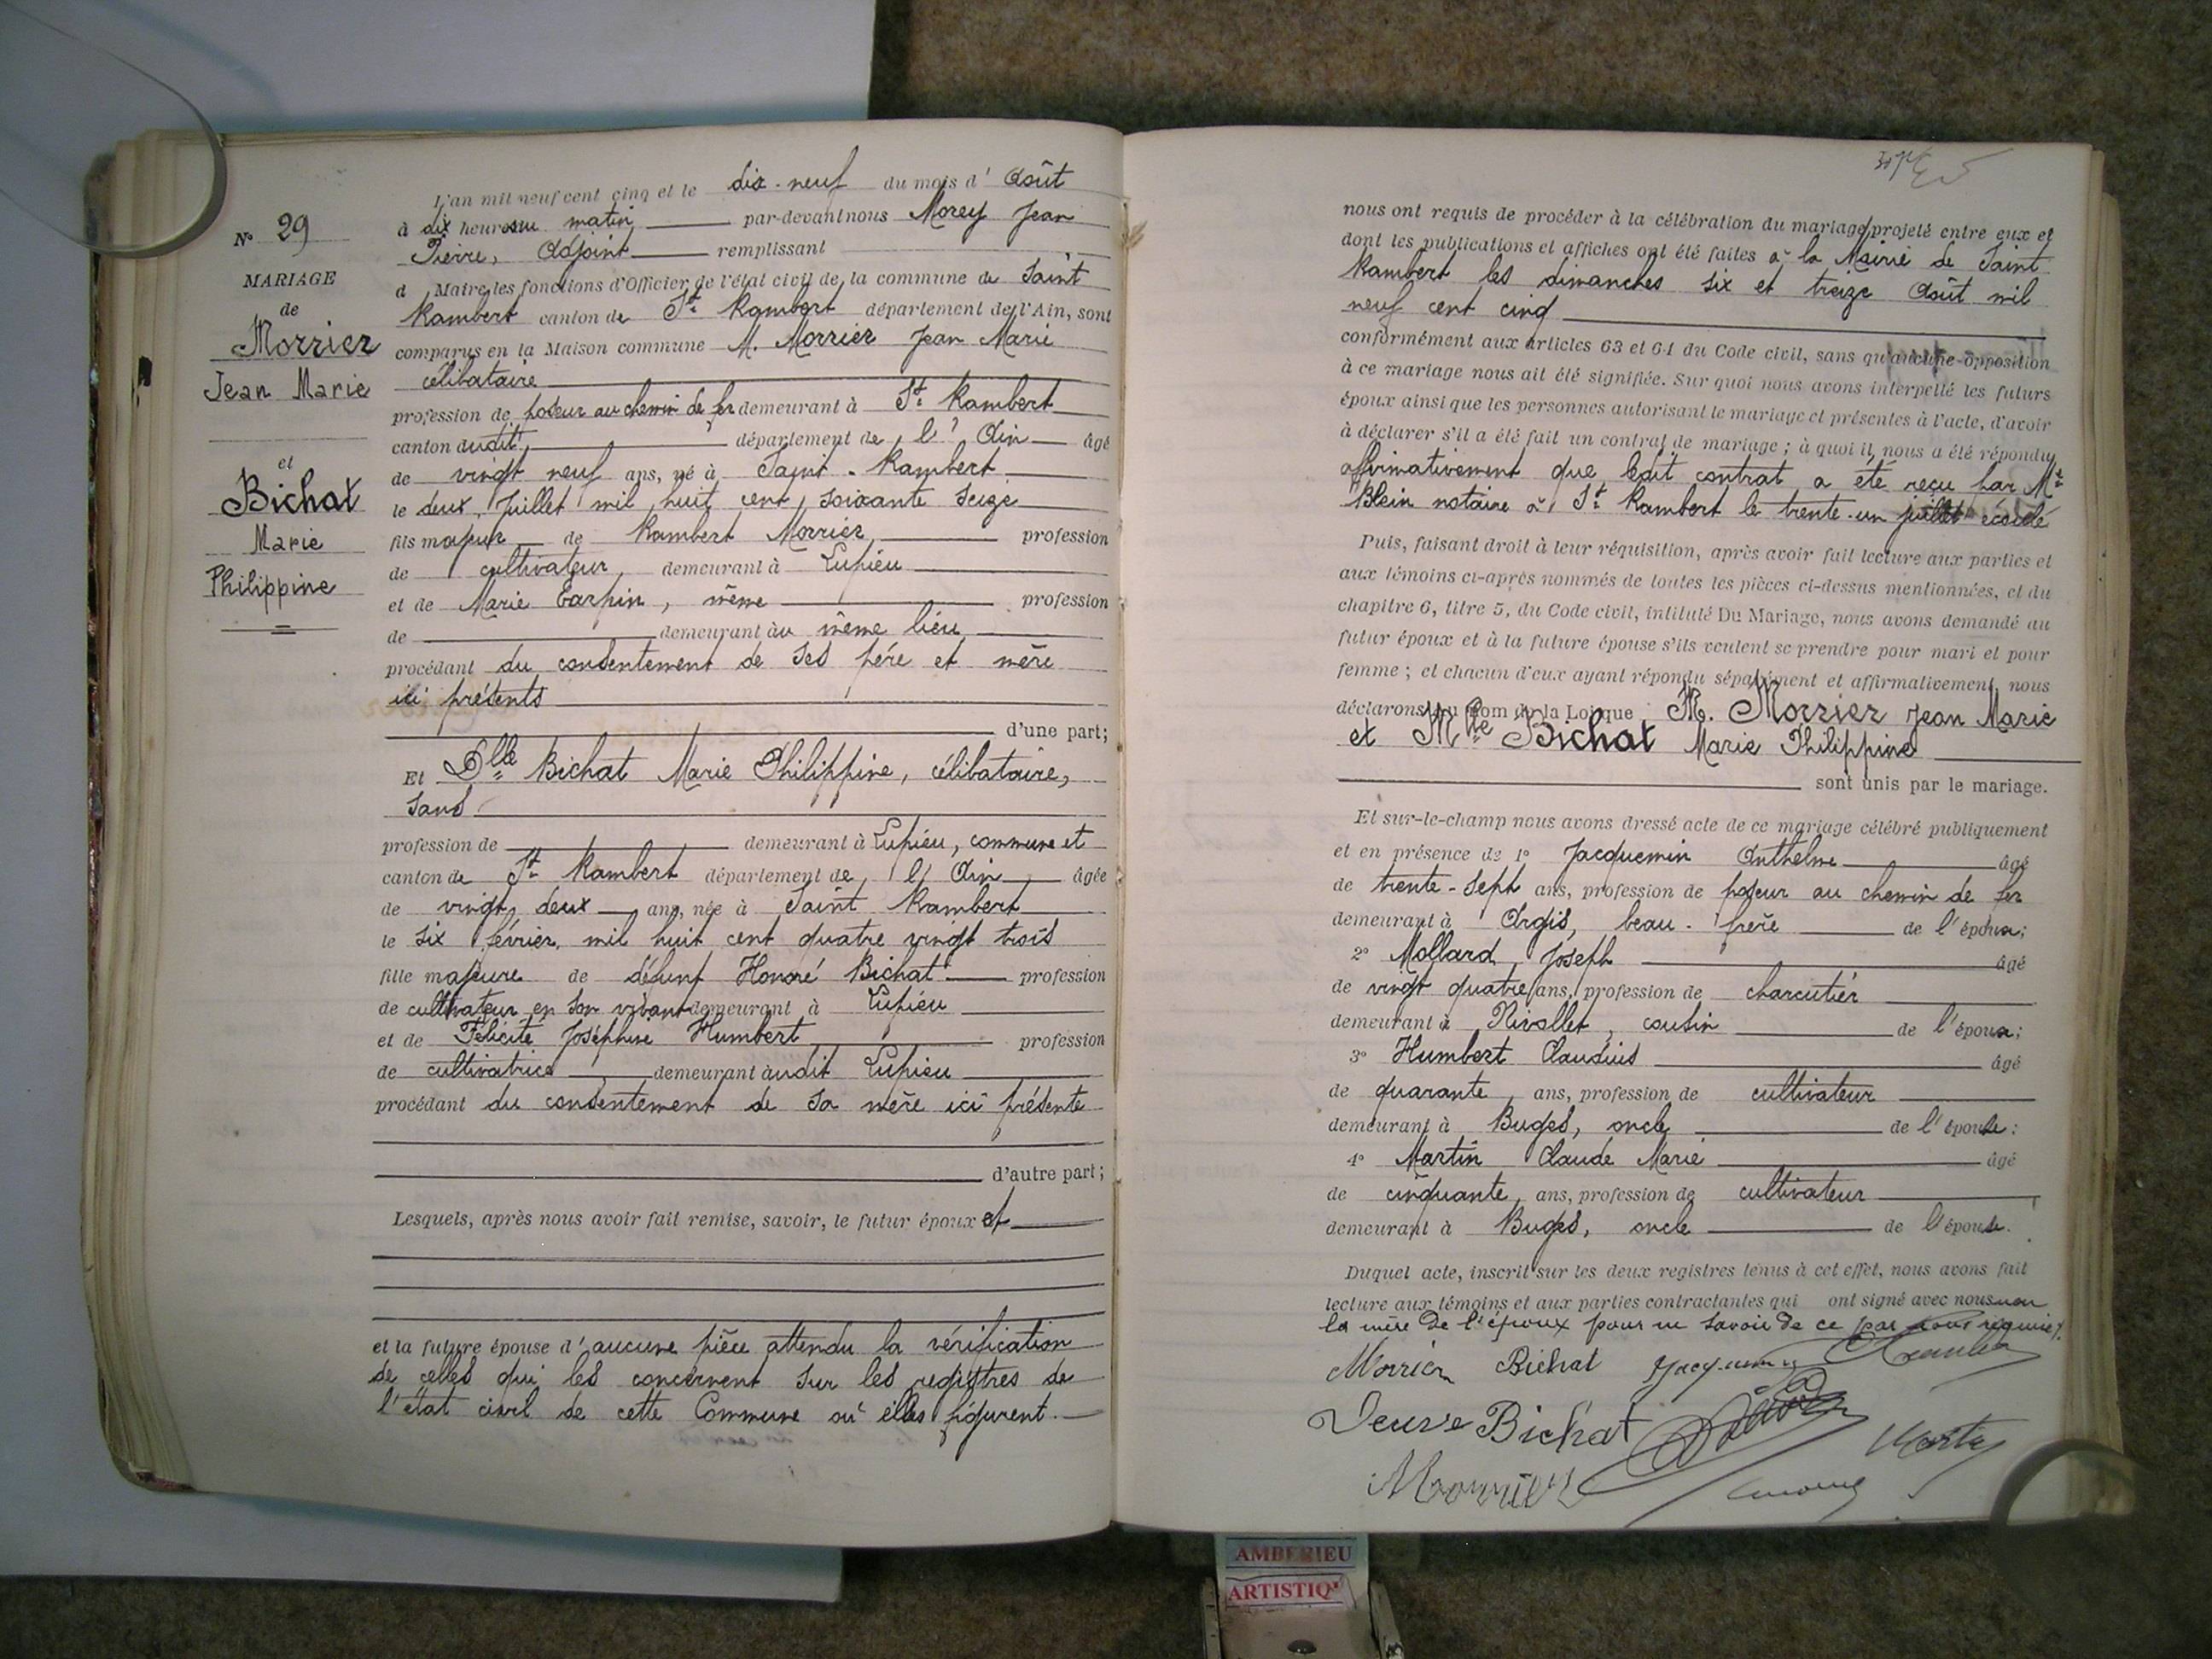 N° 29
MARIAGE
de
Morrier
Jean Marie
et
Bichat
Marie
Philippine
L'an mil neuf cent cinq et le dix-neuf du mois d'Août
à dix heures du matin par-devant nous Morey Jean
Pierre, Adjoint remplissant
d Maire les fonctions d'Officier de l'état civil de la commune de Saint
Rambert canton de St Rambert département de l'Ain, sont
comparus en la Maison commune M. Morrier Jean Marie
célibataire
profession de poseur au chemin de fer demeurant à St Rambert
canton dudit département de l'Ain âgé
de vingt neuf ans, né à Saint-Rambert
le deux Juillet mil huit cent soixante seize
fils majeur de Rambert Morrier profession
de cultivateur demeurant à Lupieu
et de Marie Carpin, même profession
de demeurant au même lieu
procédant du consentement de ses père et mère
ici présents
d'une part;
Et Dlle Bichat Marie Philippine, célibataire,
sans
profession de demeurant à Lupieu, commune et
canton de St Rambert département de l'Ain âgée
de vingt deux ans, née à Saint Rambert
le six février mil huit cent quatre vingt trois
fille majeure de défunt Honoré Bichat profession
de cultivateur en son vivant demeurant à Lupieu
et de Félicité Joséphine Humbert profession
de cultivatrice demeurant audit Lupieu
procédant du consentement de sa mère ici présente
d'autre part;
Lesquels, après nous avoir fait remise, savoir, le futur époux et
et la future épouse d'aucune pièce attendu la vérification
de celles qui les concernent sur les registres de
l'état civil de cette Commune où elles figurent.
nous ont requis de procéder à la célébration du mariage projeté entre eux et
dont les publications et affiches ont été faites à la Mairie de Saint
Rambert les dimanches six et treize Août mil
neuf cent cinq
conformément aux articles 63 et 64 du Code civil, sans qu'aucune opposition
à ce mariage nous ait été signifiée. Sur quoi nous avons interpellé les futurs
époux ainsi que les personnes autorisant le mariage et présentes à l'acte, d'avoir
à déclarer s'il a été fait un contrat de mariage; à quoi il nous a été répondu
affirmativement que ledit contrat a été reçu par Me
Blein notaire à St Rambert le trente-un juillet écoulé
Puis, faisant droit à leur réquisition, après avoir fait lecture aux parties et
aux témoins ci-après nommés de toutes les pièces ci-dessus mentionnées, et du
chapitre 6, titre 5, du Code civil, intitulé Du Mariage, nous avons demandé au
futur époux et à la future épouse s'ils veulent se prendre pour mari et pour
femme; et chacun d'eux ayant répondu séparément et affirmativement, nous
déclarons au nom de la Loi que M. Morrier Jean Marie
et Mlle Bichat Marie Philippine
sont unis par le mariage.
Et sur-le-champ nous avons dressé acte de ce mariage célébré publiquement
et en présence de 1° Jacquemin Anthelme âgé
de trente-sept ans, profession de poseur au chemin de fer
demeurant à Argis, beau-frère de l'époux;
2° Mollard Joseph âgé
de vingt quatre ans, profession de charcutier
demeurant à Nivollet, cousin de l'époux;
3° Humbert Claudius âgé
de quarante ans, profession de cultivateur
demeurant à Buges, oncle de l'épouse:
4° Martin Claude Marie âgé
de cinquante ans, profession de cultivateur
demeurant à Buges, oncle de l'épouse.
Duquel acte, inscrit sur les deux registres tenus à cet effet, nous avons fait
lecture aux témoins et aux parties contractantes qui ont signé avec nous non
la mère de l'époux pour ne savoir de ce par nous requise.
Morrier Bichat Jacquemin
Veuve Bichat
Morrier
AMBERIEU
ARTISTIQ'